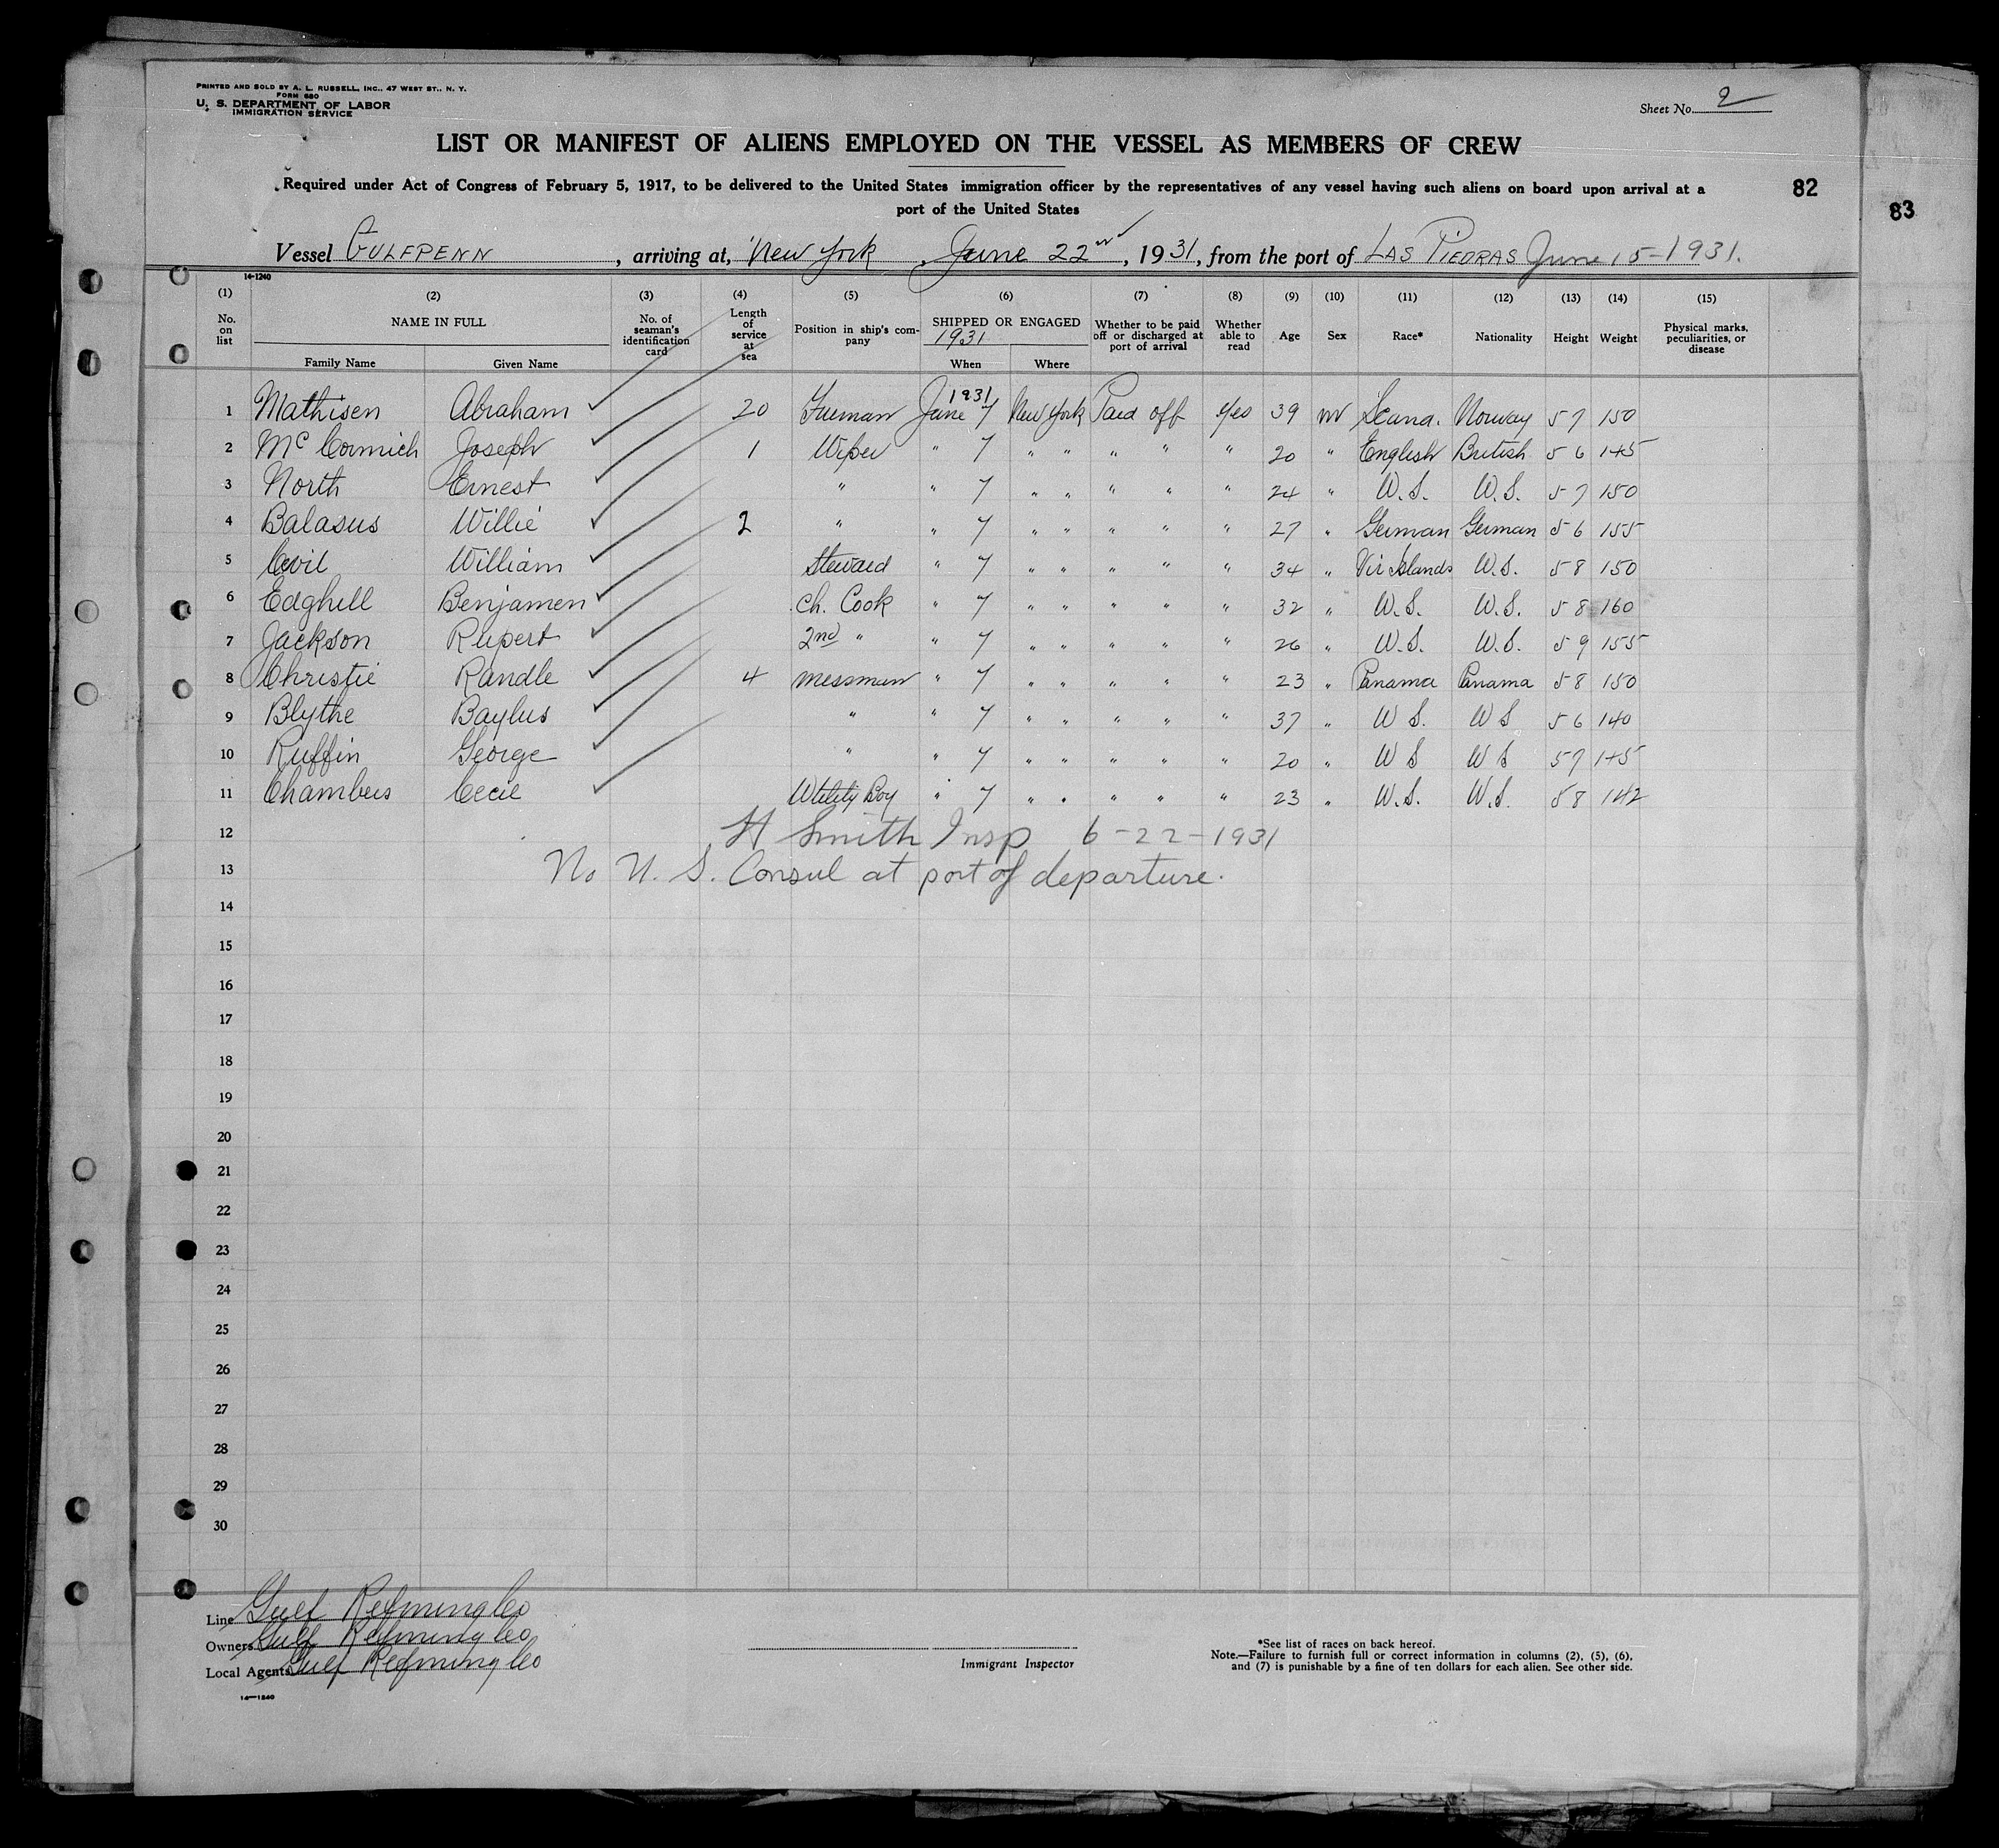 PRINTED AND SOLD BY A. L. RUSSELL, INC., 47 WEST ST., N. Y.
FORM 680
U. S. DEPARTMENT OF LABOR
IMMIGRATION SERVICE
Sheet No. 2
LIST OR MANIFEST OF ALIENS EMPLOYED ON THE VESSEL AS MEMBERS OF CREW
Required under Act of Congress of February 5, 1917, to be delivered to the United States immigration officer by the representatives of any vessel having such aliens on board upon arrival at a
port of the United States
82
83
Vessel GULFPENN, arriving at, New York, June 22nd, 1931, from the port of LAS PIEDRAS June 15-1931.
14-1240
(1) (2) (3) (4) (5) (6) (7) (8) (9) (10) (11) (12) (13) (14) (15)
No. on list NAME IN FULL No. of seaman's identification card Length of service at sea Position in ship's company SHIPPED OR ENGAGED 1931 Whether to be paid off or discharged at port of arrival Whether able to read Age Sex Race* Nationality Height Weight Physical marks, peculiarities, or disease
Family Name Given Name When Where
1931
1 Mathisen Abraham 20 Fireman June 7 New York Paid off Yes 39 M Scand. Norway 5 7 150
2 McCormich Joseph 1 Wiper " 7 " " " " " 20 " English British 5 6 145
3 North Ernest " " 7 " " " " " 24 " U.S. U.S. 5 7 150
4 Balasus Willie 2 " " 7 " " " " " 27 " German German 5 6 155
5 Civil William Steward " 7 " " " " " 34 " Vir Islands U.S. 5 8 150
6 Edghill Benjamen Ch. Cook " 7 " " " " " 32 " U.S. U.S. 5 8 160
7 Jackson Rupert 2nd " " 7 " " " " " 26 " U.S. U.S. 5 9 155
8 Christie Randle 4 messman " 7 " " " " " 23 " Panama Panama 5 8 150
9 Blythe Baylus " " 7 " " " " " 37 " U S. U S 5 6 140
10 Ruffin George " " 7 " " " " " 20 " U S U S 5 7 145
11 Chambers Cecil Utility Boy " 7 " " " " " 23 " U.S. U.S. 5 8 142
12 H Smith Insp 6-22-1931
13 No U. S. Consul at port of departure.
14
15
16
17
18
19
20
21
22
23
24
25
26
27
28
29
30
Line Gulf Refining Co
Owners Gulf Refining Co
Local Agents Gulf Refining Co
14-1240
Immigrant Inspector
*See list of races on back hereof.
Note.—Failure to furnish full or correct information in columns (2), (5), (6),
and (7) is punishable by a fine of ten dollars for each alien. See other side.